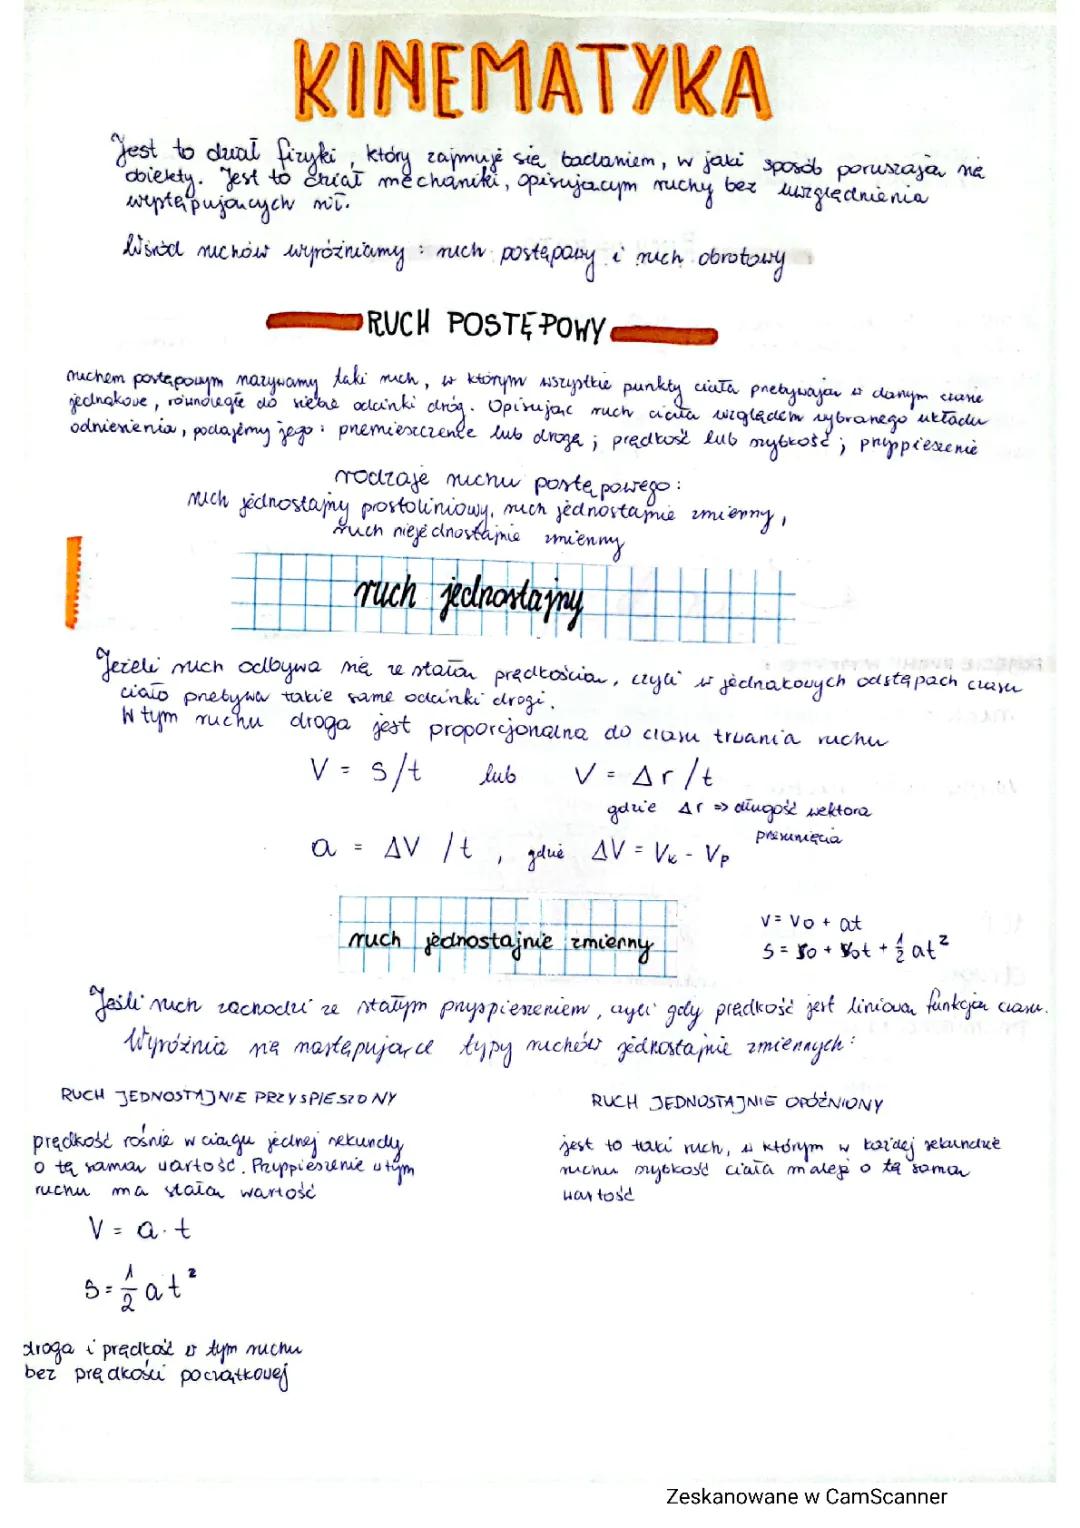 KINEMATYKA
Jest to dział fizyki, który zajmuje się badaniem, w jaki sposób poruszają się
obiekty. Jest to dział mechaniki, opisującym ruchy bez uwzględnienia
występujących sił.
Wśród ruchów wyróżniamy: ruch postępowy i ruch obrotowy
RUCH POSTĘPOWY
ruchem postępowym nazywamy taki ruch, w którym wszystkie punkty ciała przebywają w danym czasie
jednakowe, równoległe do siebie odcinki dróg. Opisując ruch ciała względem wybranego układu
odniesienia, podajemy jego: przemieszczenie lub drogę; prędkość lub szybkość; przyspieszenie
rodzaje ruchu postępowego:
ruch jednostajny prostoliniowy, ruch jednostajnie zmienny,
ruch niejednostajnie zmienny
ruch jednostajny
Jeżeli ruch odbywa się ze stałą prędkością, czyli w jednakowych odstępach czasu
ciało przebywa takie same odcinki drogi.
W tym ruchu droga jest proporcjonalna do czasu trwania ruchu
V = S/t lub V = Δr/t
gdzie Δr => długość wektora
przesunięcia
a = ΔV/t, gdzie ΔV = Vk - Vp
ruch jednostajnie zmienny
V = Vo + at
S = So + Vot + 1/2 at²
Jeśli ruch zachodzi ze stałym przyspieszeniem, czyli gdy prędkość jest liniową funkcją czasu.
Wyróżnia się następujące typy ruchów jednostajnie zmiennych:
RUCH JEDNOSTAJNIE PRZYSPIESZONY
prędkość rośnie w ciągu jednej sekundy
o tę samą wartość. Przyspieszenie w tym
ruchu ma stałą wartość
V = a·t
S = 1/2 at²
droga i prędkość w tym ruchu
bez prędkości początkowej
RUCH JEDNOSTAJNIE OPÓŹNIONY
jest to taki ruch, w którym w każdej sekundzie
ruchu szybkość ciała maleje o tę samą
wartość
Zeskanowane w CamScanner